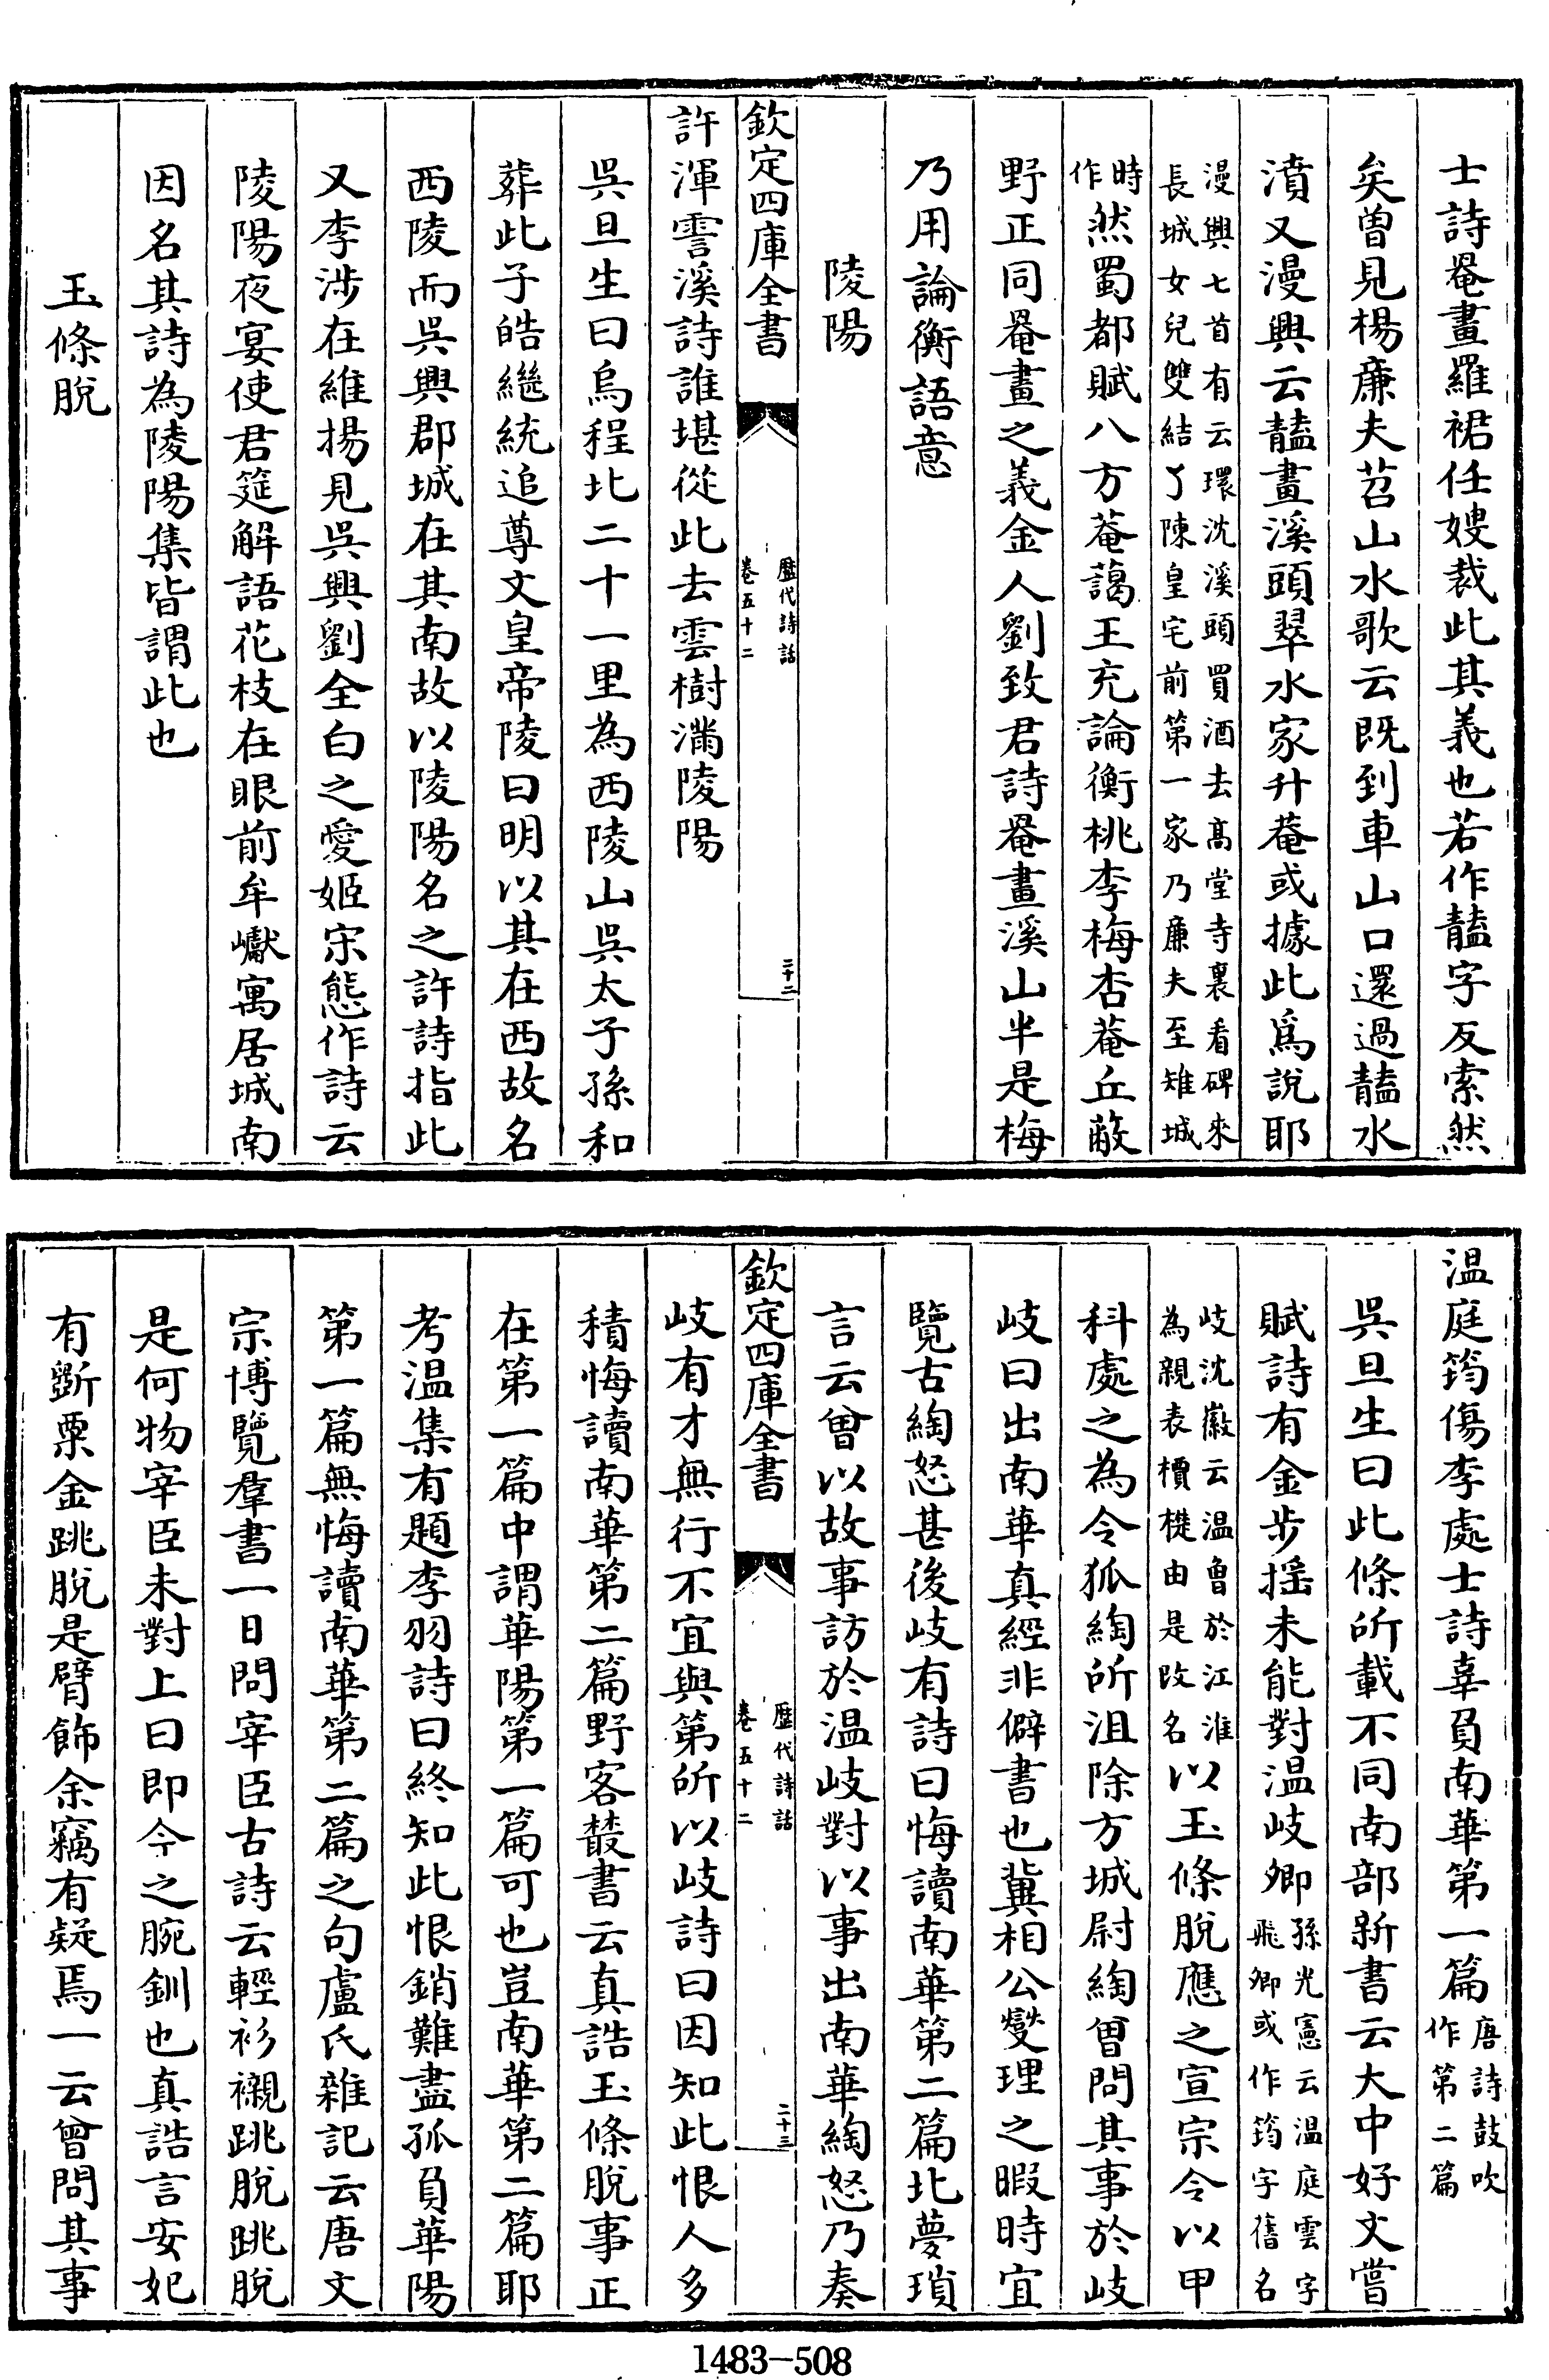 士詩罨畫羅裙任嫂裁此其義也若作䕶字反索然
矣曽見楊廉夫苕山水歌云既到車山口還過䕶水
濆又漫興云䕶畫溪頭翠水家升菴或據此爲說耶
漫興七首有云環沈溪頭買酒去髙堂寺裏看碑來
長城女兒雙結丫陳皇宅前第一家乃廉夫至雉城
時
作然蜀都賦八方菴藹王充論衡桃李梅杏菴丘蔽
野正同罨畫之義金人劉致君詩罨畫溪山半是梅
乃用論衡語意
陵陽
欽定四庫全書
歴代詩話
卷五十二
二十二
許渾霅溪詩誰堪從此去雲樹滿陵陽
吳旦生曰烏程北二十一里為西陵山吳太子孫和
葬此子皓繼統追尊文皇帝陵曰明以其在西故名
西陵而吳興郡城在其南故以陵陽名之許詩指此
又李涉在維揚見吳興劉全白之愛姬宋態作詩云
陵陽夜宴使君筵解語花枝在眼前牟巘寓居城南
因名其詩為陵陽集皆謂此也
玉條脫
温庭筠傷李處士詩辜負南華第一篇唐詩鼓吹
作第二篇
吳旦生曰此條所載不同南部新書云大中好文嘗
賦詩有金步揺未能對温岐卿孫光憲云温庭雲字
飛卿或作筠字舊名
岐沈徽云温曽於江淮
為親表檟楚由是改名以玉條脫應之宣宗令以甲
科處之為令狐綯所沮除方城尉綯曽問其事於岐
岐曰出南華真經非僻書也冀相公爕理之暇時宜
覽古綯怒甚後岐有詩曰悔讀南華第二篇北夢瑣
言云曽以故事訪於温岐對以事出南華綯怒乃奏
欽定四庫全書
歴代詩話
卷五十二
二十三
岐有才無行不宜與第所以岐詩曰因知此恨人多
積悔讀南華第二篇野客叢書云真誥玉條脫事正
在第一篇中謂華陽第一篇可也豈南華第二篇耶
考温集有題李羽詩曰終知此恨銷難盡孤負華陽
第一篇無悔讀南華第二篇之句盧氏雜記云唐文
宗博覽羣書一日問宰臣古詩云輕衫襯跳脫跳脫
是何物宰臣未對上曰即今之腕釧也真誥言安妃
有斵粟金跳脫是臂飾余竊有疑焉一云曾問其事
1483-508